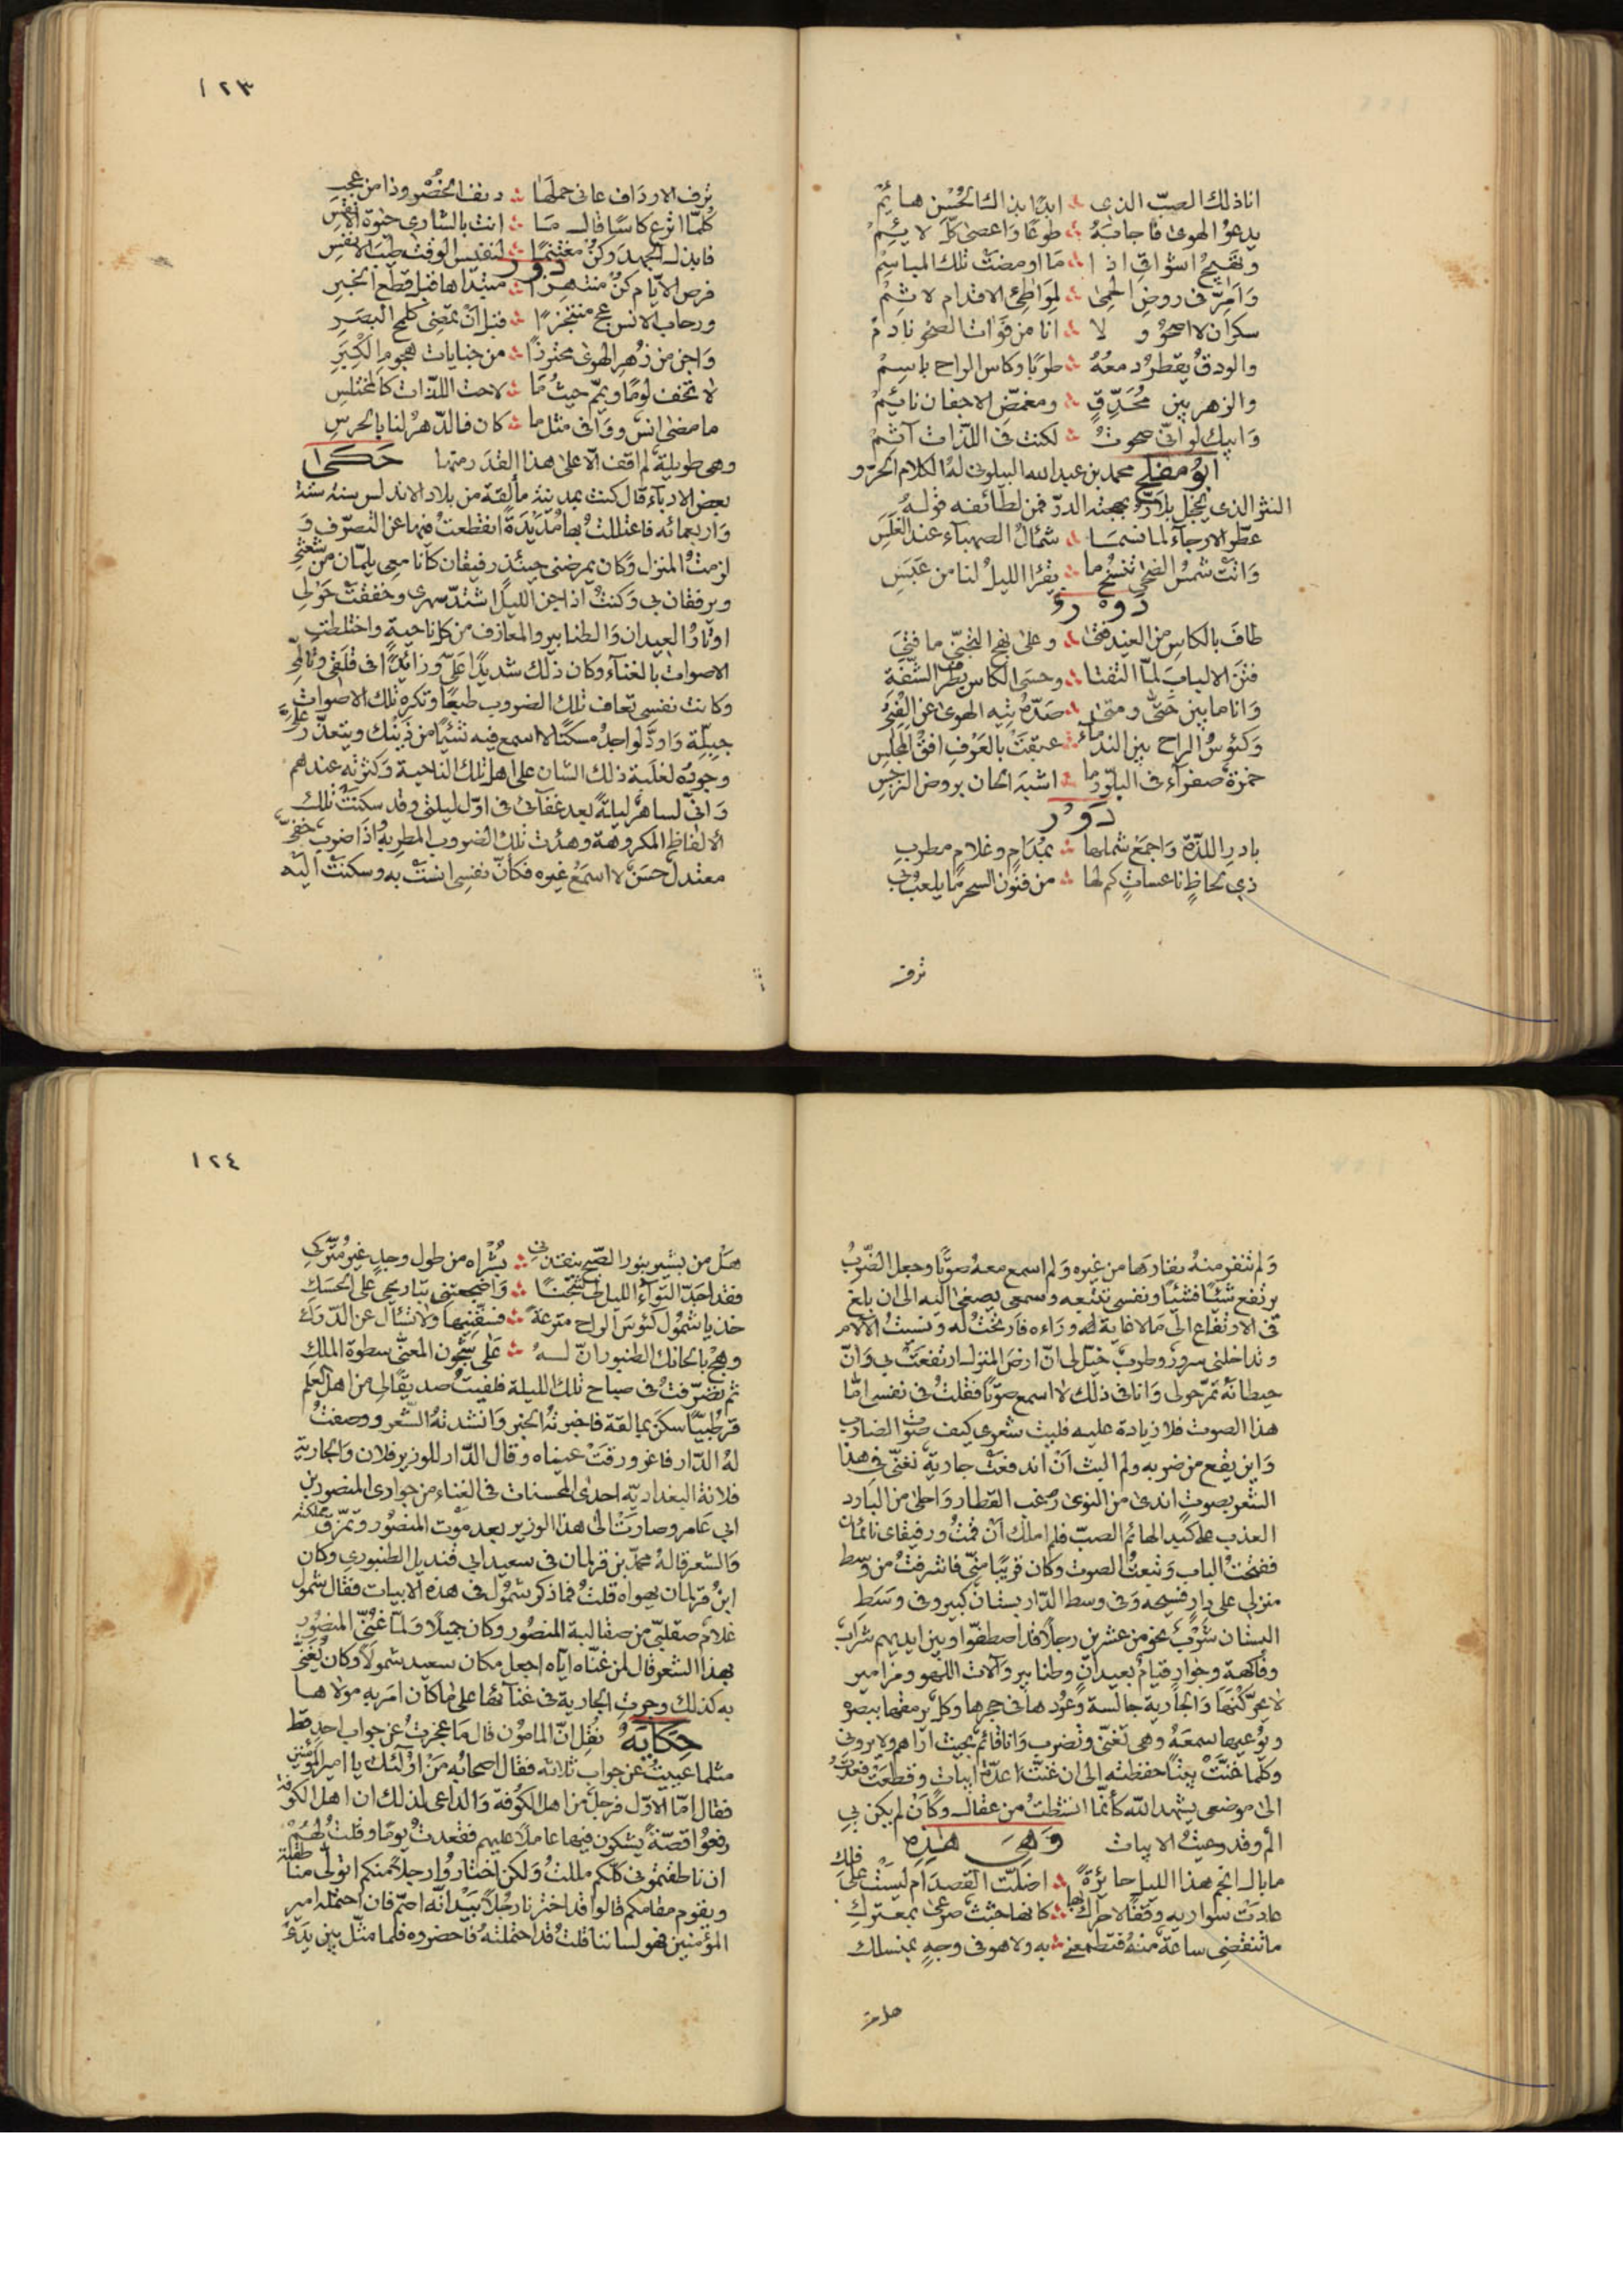 انا ذلك الصبّ الذي ؞ ابدًا بذاك الحُسْن هائم
يدعو الهوى فاجابَهُ ؞ طوعًا وَاعصى كلّ لايِمْ
ويهيج اشواقي اذا ؞ مَا اومضَتْ تلك المباسم
وَامرّ في روض الحمى ؞ لمواطئ الاقدام لاثم
سكران لا اصحو و لا ؞ انا من فوات الصحو نادم
والودق يقطر دمعُهُ ؞ طربًا وكاس الراح باسم
والزهر بين مُحَدِّقٍ ؞ ومغمّض الاجفان نائم
وَابيك لو انّي صحوت ؞ لكنت في اللذّات آثم
ابو مفلح محمد بن عبد الله البيلوني لهُ الكلام الحرّ و
النثر الذي يخجل بلادرّ بهجته الدرّ فمن لطائفه قولهُ
عطّر الارجآء لما نسمَا ؞ شمأل الصهباء عند الغلَسِ
وَانت شمسُ الضحى تنسخ ما ؞ يقرا الليلُ لنا من عَبَسِ
دَوْر
طاف بالكاس من الغيد فتى ؞ وعلى نهج التجنّي ما فتي
فتنَ الالباب لمّا التفتا ؞ وحسَى الكاس بقطر الشفة
وَانا ما بين حتّى ومتى ؞ صَدّهُ تيه الهوى عن الفتي
وَكئوسُ الراح بين الندماء ؞ عبقتْ بالعَرْفِ افق المجلسِ
خمرة صفراء في البلّور ما ؞ اشبه الحان بروض النرجس
دَوْر
بادر اللذّة وَاجمع شملها ؞ بمُدَامٍ وغلامٍ مطرب
ذي لحاظٍ ناعساتٍ كم لها ؞ من فنون السحر ما يلعب بي
ترف
١٢٣
ترف الارداف عانى حملَها ؞ دنف الخصْر وذا من عجب
كلّما اترع كاسًا قال مَا ؞ انت بالشاري حيوة الانفس
فابذل الجهد وكن مغتنمًا ؞ لنفيس الوقت طيب الانفس
دَوْر
فرص الايّام كن منتهزًا ؞ مبتداها قبل قطع الخبر
ورحاب الانس عج منتجزًا ؞ قبل انْ تمضي كلمح البصَرِ
وَاجن من زهر الهوى محترزًا ؞ من جنايات هجوم الكبَرِ
لا تخف لومًا ويمّم حيثُ مَا ؞ لاحت اللذّات كالمختلس
ما مضى انس ووَافى مثل ما ؞ كان فالدّهرُ لنا بالحرسِ
وهي طويلة لم اقف الّا على هذا القدَر منها حكى
بعض الادبآء قال كنت بمدينة مالقة من بلاد الاندلس سنة ستة
وَاربعمائه فاعتللتُ بها مُدَيْدَةً انقطعتُ فيها عن التصرّف وَ
لزمتُ المنزل وَكان يمرضني حينئذٍ رفيقان كانا معي يلمّان من شعثي
ويرفقان بي وَكنتُ اذا جن الليل اشتدّ سهري وخفقتْ حَوْلي
اوتارُ العيدان وَالطنابير والمعازف من كل ناحيةٍ واختلطت
الاصوات بالغنآء وكان ذلك شديدًا عَلَيّ وزائدًا في قلقي وتألّمي
وكانت نفسي تعاف تلك الضروب طبعًا وتكره تلك الاصوات
جبلّة وَاودّ لو اجد مسكنًا لا اسمع فيه شيئًا من ذينك ويتعذّر عليّ
وجودُه لغلبة ذلك الشان على اهل تلك الناحية وَكثرته عندهم
وَانّي لساهرٌ ليلةً بعد غفآتي في اوّل ليلتي وقد سكنت تلك
الالفاظ المكروهة وهدأت تلك الضروب المطربة واذا ضرب خفيّ
معتدل حسَن لا اسمع غيره فكانّ نفسي انستْ به وسكنتْ اليه
وَلم تنفر منهُ نفارها من غيره وَلم اسمع معهُ صوتًا وجعل الضّربُ
يرتفع شيئًا فشيئًا ونفسي تتبعه وسمعي يصغى اليه الى ان بلغ
في الارتفاع الى ما لا غاية لهُ ورَاءه فارتحتُ له ونسيت الآلام
وتداخلني سرورٌ وطربٌ خيّل لي انّ ارض المنزل ارتفعَتْ بي وَانّ
حيطانَهُ تمرّ حولي وَانا في ذلك لا اسمع صوتًا فقلتُ في نفسي امّا
هذا الصوت فلا زيادة عليه فليت شعري كيف صوت الضارب
وَاين يقع من ضربه ولم البث انْ اندفعَتْ جارية تغنّي في هذا
الشعر بصوت اندى من النوى غب القطار واحلى من البارد
العذب على كبد الهائم الصبّ فلم املك انْ قمتُ ورفيقاي نائمان
ففتحت الباب وَتبعتُ الصوت وكان قريبًا منّي فاشرفتُ من وسط
منزلي على دارٍ فسيحه وَفي وسط الدّار بستانٌ كبير وفي وسَطِ
البستان شَرْبٌ نحو من عشرين رجلًا قد اصطفّوا وبين ايديهم شراب
وفاكهة وجَوارٍ قيامٌ بعيدانٍ وطنابير وَآلات اللهو ومزامير
لا يحرّكنَها وَالجارية جالسة وَعُودها في حجرها وكلٌ يرمقها ببصره
ويوعيها سمعَهُ وهي تغنّي وتضرب وَانا قائم بحيث اراهم ولا يروني
وكلّما غنّتْ بيتًا حفظته الى ان غنّتْ عدّة ابيات وقطعَتْ فعدتُ
الى موضعي يشهد الله كأنّما انشطتُ من عقال وكأن لم يكن بي
الم وقد وعيتُ الابيات وَهِيَ هٰذِهِ
مابال انجم هذا الليل حائرةً ؞ اضلّت القصدَ ام ليستْ على فلك
عادَتْ سَواريهِ وقفًا لا حراكَ بها ؞ كانها جثث صرعى بمعترك
ما تنقضي ساعة منهُ فتطمعني ؞ به ولا هو في وجهٍ بمنسلك
١٢٤
هَلْ من بشير بنور الصّبح ينقذني ؞ بُشْراه من طول وجدٍ غير متّركي
خذ يا شمُول كئوسَ الراح مترعةً ؞ فسقّنيها ولا تسأل عن الدّرك
وهج بالحانك الطنبور انّ لهُ ؞ عَلَى شجون المعنّى سطوة الملكِ
ثم تصرّفتُ في صباح تلك الليلة فلقيتُ صديقًا لي من اهل العلم
قرطبيًّا سكنَ بمالقة فاخبرتهُ الخبر وَانشدتهُ الشّعر ووصفتُ
لهُ الدّار فاغرورقَتْ عيناه وقال الدّار للوزير فلان وَالجارية
فلانة البغداديّه احدى المحسنات في الغناء من جواري المنصور بن
ابي عَامر وصارَتْ الى هذا الوزير بعد موْت المنصُور وتمزّق مملكته
وَالشعر قالهُ محمّد بن قرلمان في سعيد ابي قنديل الطنبوري وكان
ابنُ قرلمان يهواه قلتُ فما ذكر شمُول في هذه الابيات فقال شمُول
غلام صقلبّي من صقالبة المنصُور وكان جميلًا وَلمّا غُنّي المنصُور
بهذا الشعر قال لمن غنّاه اياه اجعل مكان سعيد شمولًا وكان يُغَنّى
به كذلك وجرت الجارية في غنآئها على ما كان امَر به مولاها
حكاية نقِل انّ المامون قال مَا عجزتُ عن جواب احدٍ قط
مثلما عييتُ عن جواب ثلاثه فقال اصحابُه مَنْ اولٰئك يا امير المؤمنين
فقال امّا الاوّل فرجلٌ من اهل الكوفة وَالداعي لذلك ان اهل الكوفة
رفعُوا قصّةً يشكون فيها عاملًا عليهم فقعدتُ يومًا وقلتُ لهُمْ
ان ناطقتموني كلّكم مللتُ وَلكن اختارُوا رجلًا منكم اتولّى مناطقته
ويقوم مقامكم قالوا قد اخترنا رجُلًا بَيْدَ انّه اصمّ فان احتمله امير
المؤمنين فهو لساننا قلتُ قد احتملتهُ فاحضروه فلما مثّل بين يدَيّ